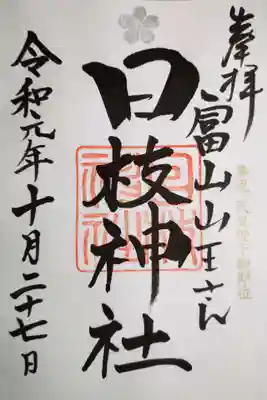 奉拝
富山山王さん
日枝神社
令和元年十月二十七日